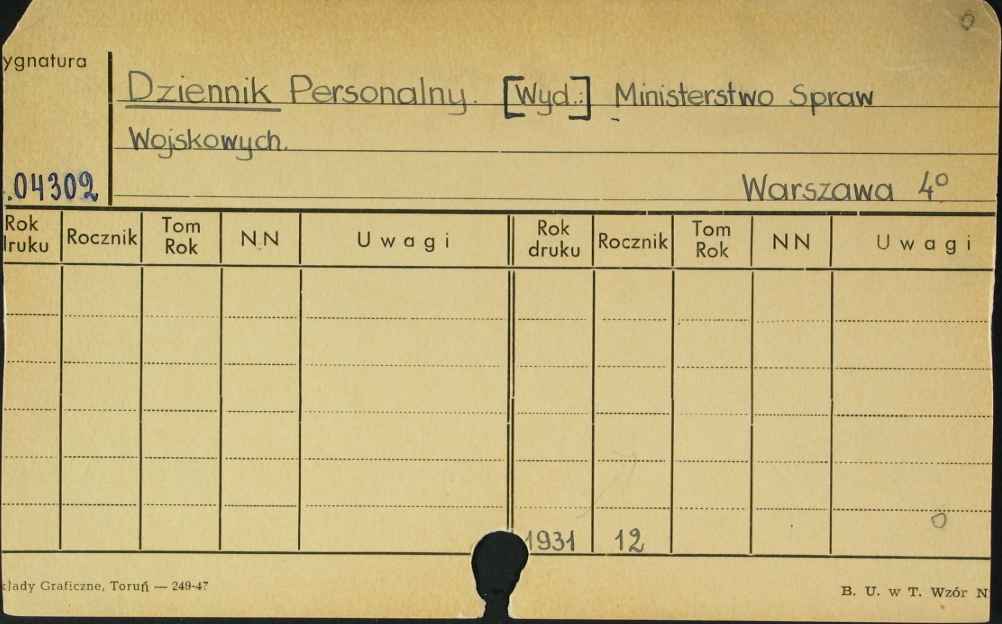 ygnatura
Dziennik Personalny. [Wyd.:] Ministerstwo Spraw
Wojskowych.
.04302
Warszawa 4°
Rok druku Rocznik Tom Rok NN Uwagi Rok druku Rocznik Tom Rok NN Uwagi
1931 12
kłady Graficzne, Toruń — 249-47
B. U. w T. Wzór N